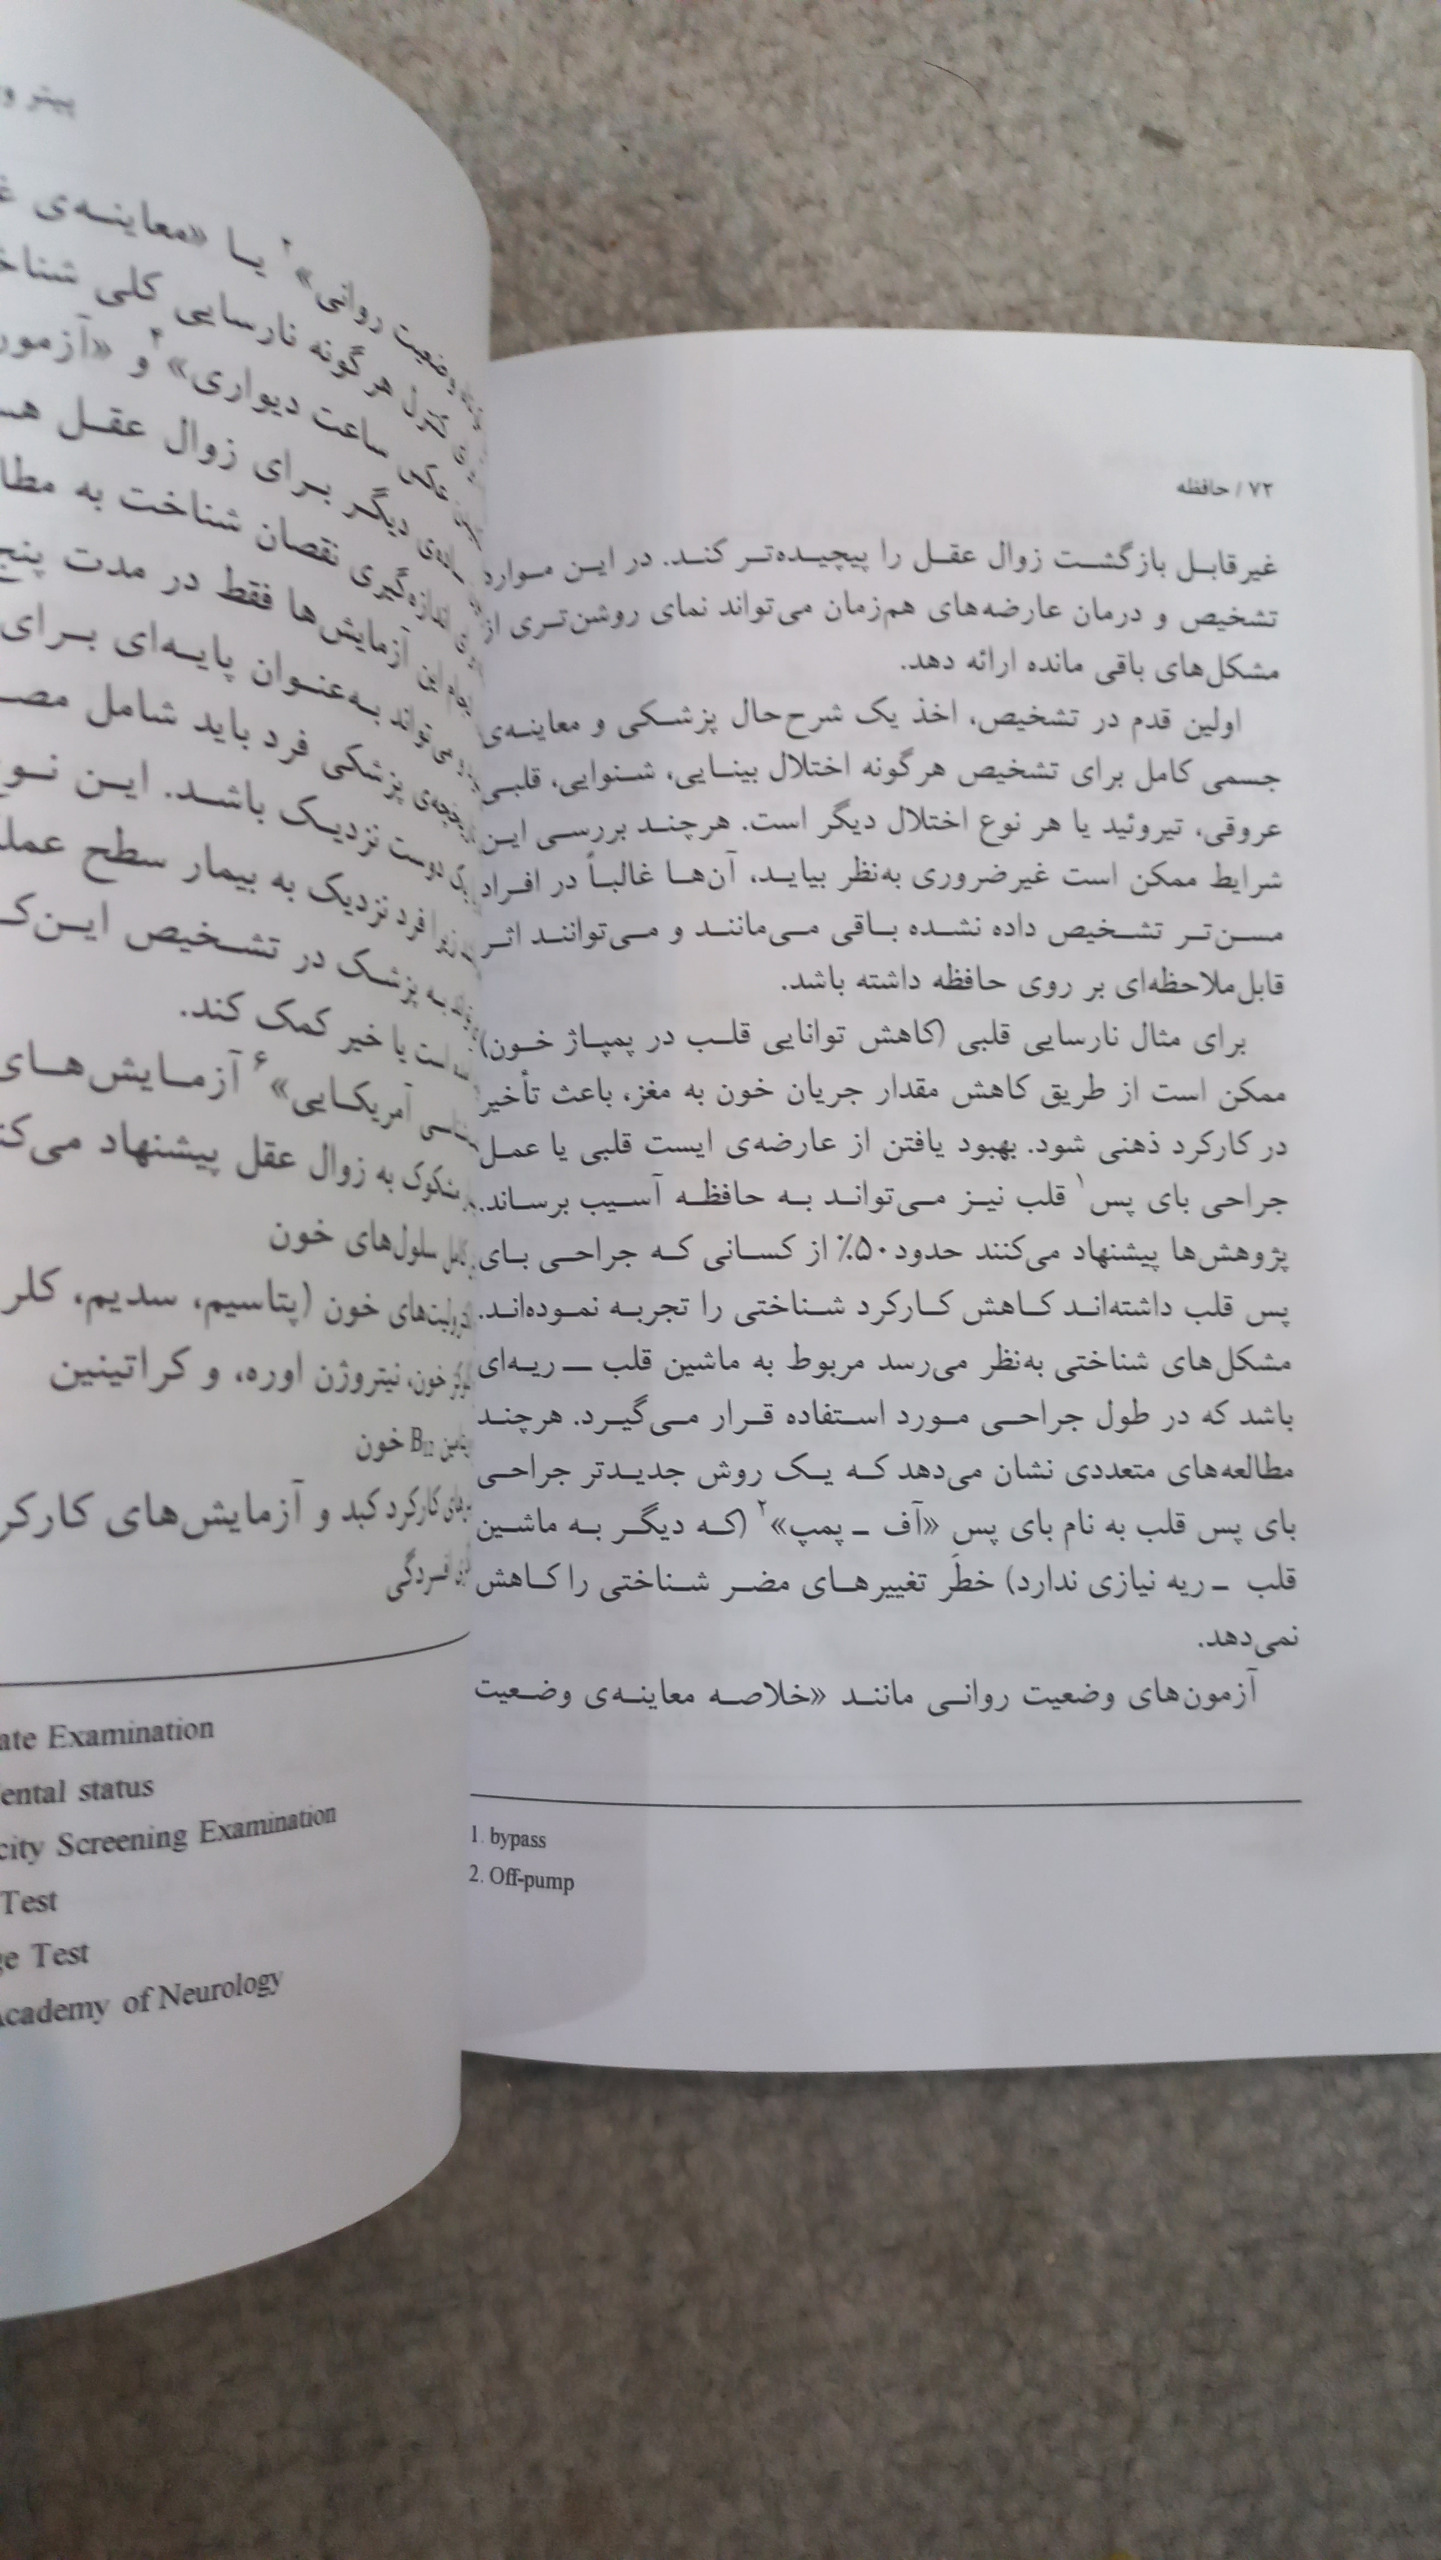 ۷۲ / حافظه
غیرقابل بازگشت زوال عقل را پیچیده‌تر کند. در این موارد
تشخیص و درمان عارضه‌های هم‌زمان می‌تواند نمای روشن‌تری از
مشکل‌های باقی مانده ارائه دهد.
اولین قدم در تشخیص، اخذ یک شرح‌حال پزشکی و معاینه‌ی
جسمی کامل برای تشخیص هرگونه اختلال بینایی، شنوایی، قلبی
عروقی، تیروئید یا هر نوع اختلال دیگر است. هرچند بررسی این
شرایط ممکن است غیرضروری به‌نظر بیاید، آن‌ها غالباً در افراد
مسن‌تر تشخیص داده نشده باقی می‌مانند و می‌توانند اثر
قابل‌ملاحظه‌ای بر روی حافظه داشته باشد.
برای مثال نارسایی قلبی (کاهش توانایی قلب در پمپاژ خون)
ممکن است از طریق کاهش مقدار جریان خون به مغز، باعث تأخیر
در کارکرد ذهنی شود. بهبود یافتن از عارضه‌ی ایست قلبی یا عمل
جراحی بای پس۱ قلب نیز می‌تواند به حافظه آسیب برساند.
پژوهش‌ها پیشنهاد می‌کنند حدود ۵۰٪ از کسانی که جراحی بای
پس قلب داشته‌اند کاهش کارکرد شناختی را تجربه نموده‌اند.
مشکل‌های شناختی به‌نظر می‌رسد مربوط به ماشین قلب ـ ریه‌ای
باشد که در طول جراحی مورد استفاده قرار می‌گیرد. هرچند
مطالعه‌های متعددی نشان می‌دهد که یک روش جدیدتر جراحی
بای پس قلب به نام بای پس «آف ـ پمپ»۲ (که دیگر به ماشین
قلب ـ ریه نیازی ندارد) خطَر تغییرهای مضر شناختی را کاهش
نمی‌دهد.
آزمون‌های وضعیت روانی مانند «خلاصه معاینه‌ی وضعیت
1. bypass
2. Off-pump
پیتر
وضعیت روانی»۲ یا «معاینه‌ی
کنترل هرگونه نارسایی کلی
عکس ساعت دیواری»۴ و
دیگر برای زوال عقل
اندازه‌گیری نقصان شناخت به
این آزمایش‌ها فقط در مدت پنج
می‌تواند به‌عنوان پایه‌ای برای
پزشکی فرد باید شامل
دوست نزدیک باشد. این
فرد نزدیک به بیمار سطح
به پزشک در تشخیص
است یا خیر کمک کند.
آمریکایی»۶ آزمایش‌های
مشکوک به زوال عقل پیشنهاد
سلول‌های خون
خون (پتاسیم، سدیم، کلر
خون، نیتروژن اوره، و کراتینین
B12 خون
کارکرد کبد و آزمایش‌های
افسردگی
Examination
status
Screening Examination
Test
Test
Academy of Neurology